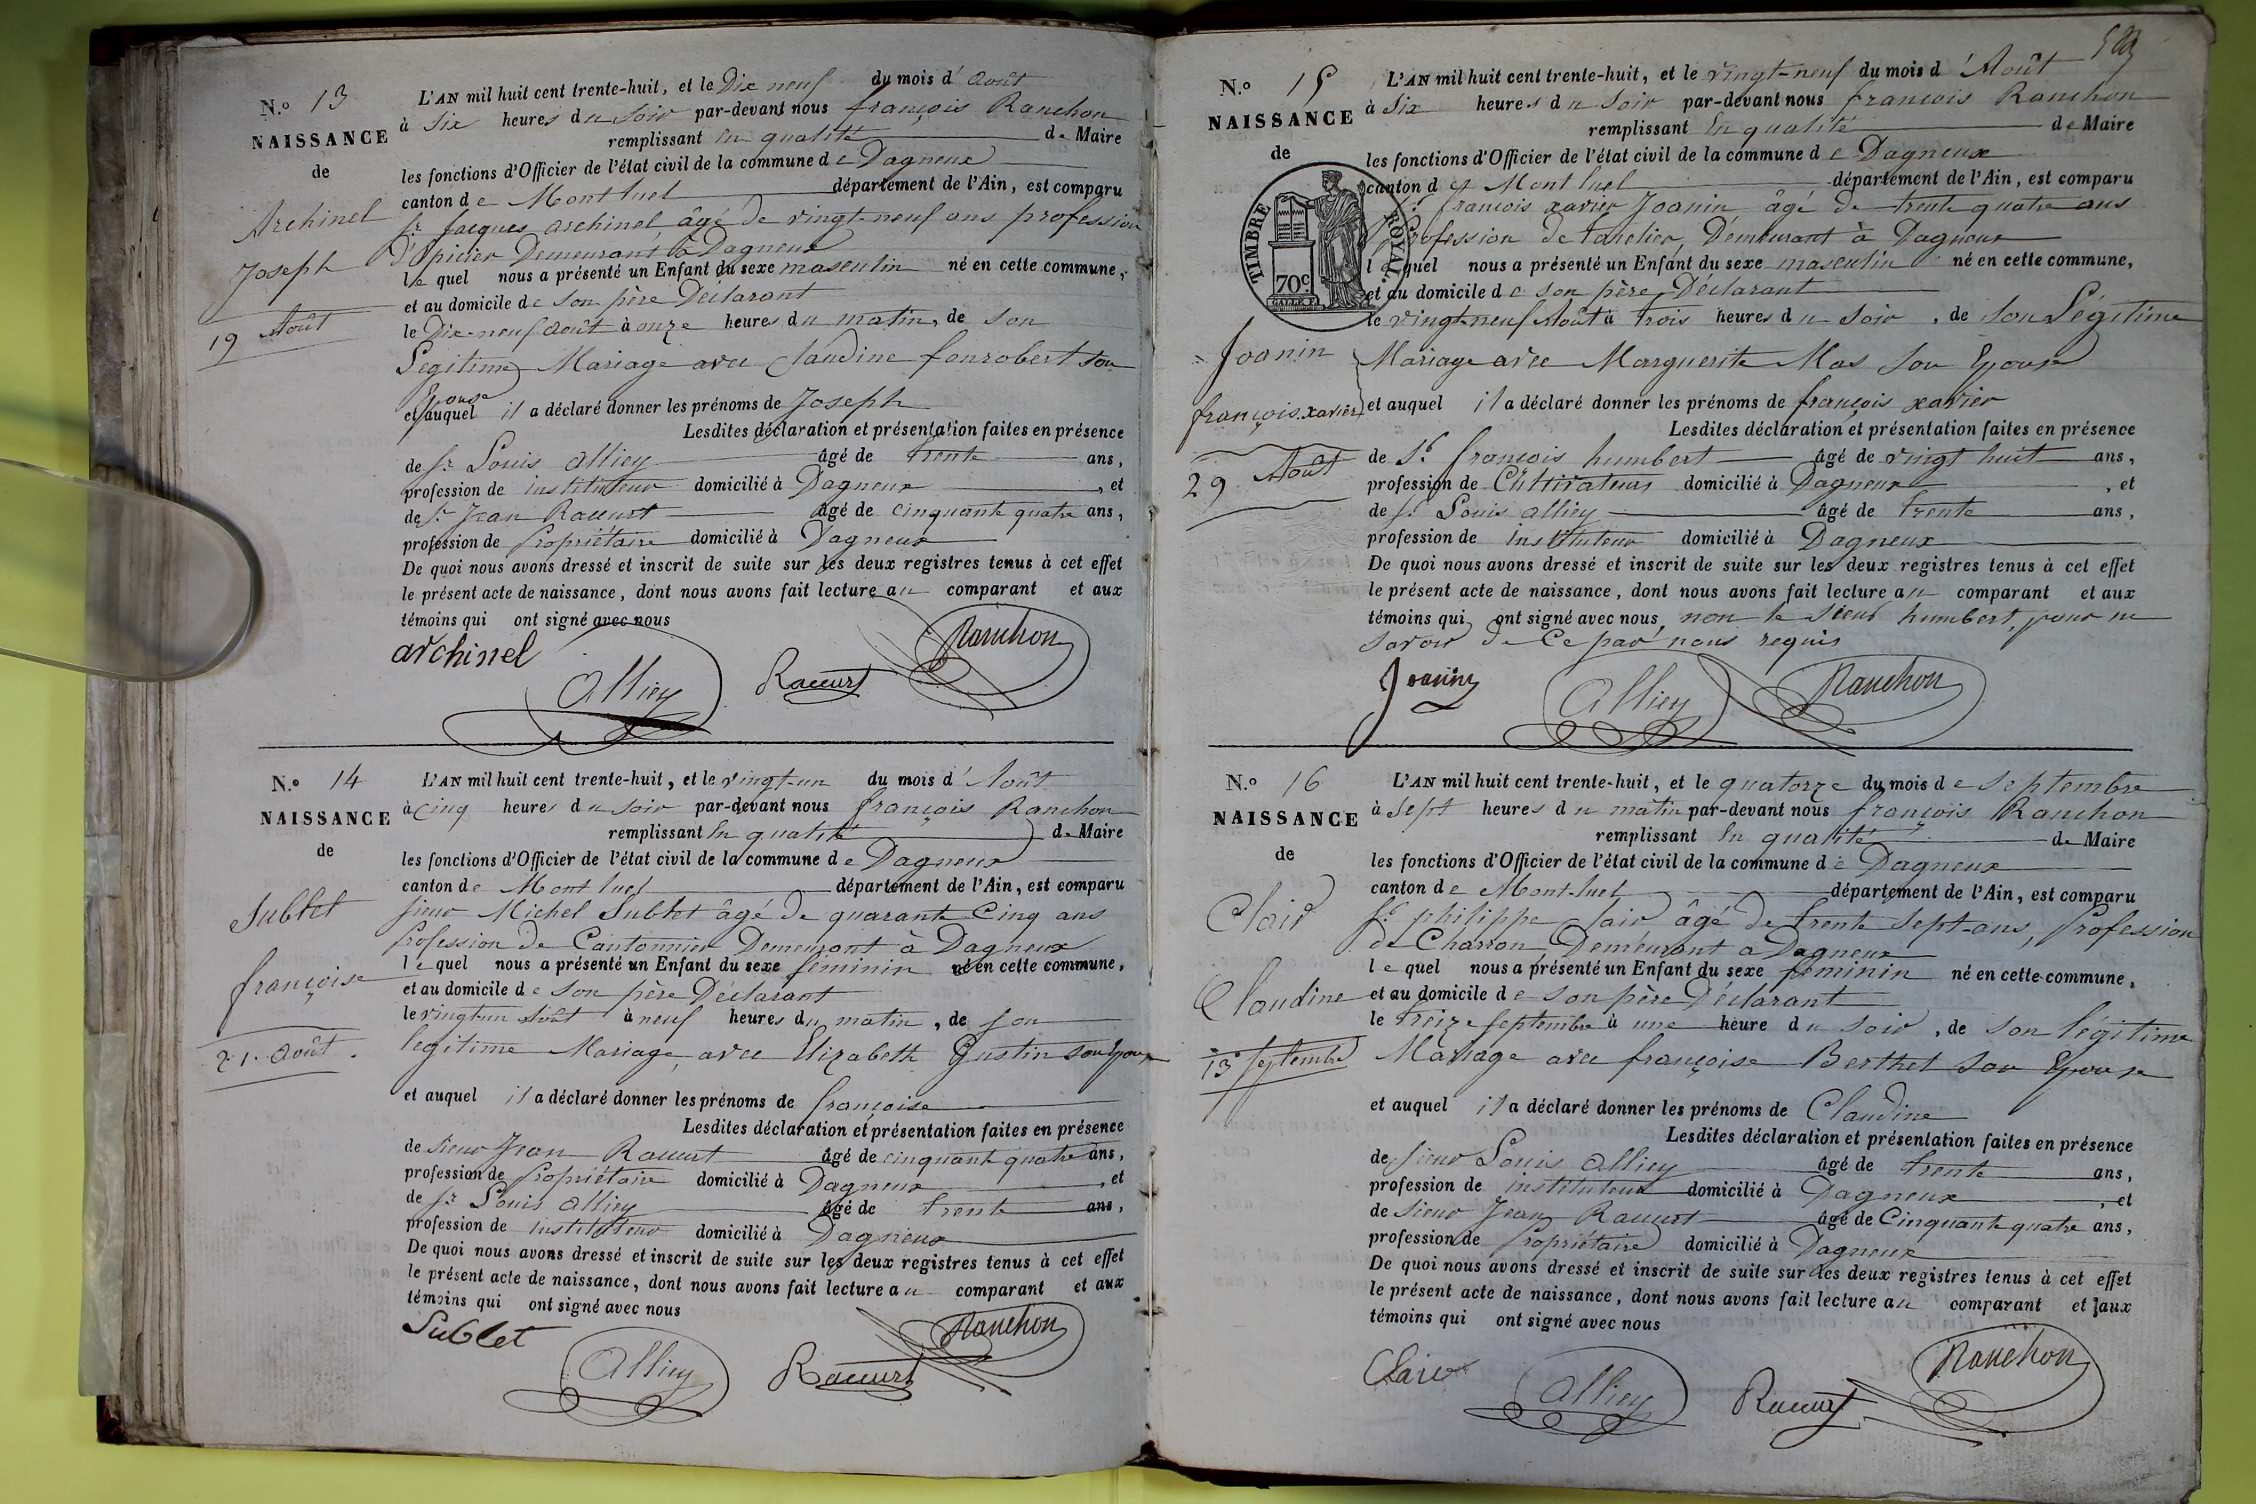 N.º 13
NAISSANCE
de
Archinel
Joseph
19 Août
L'AN mil huit cent trente-huit, et le Dix neuf du mois d'août
à Six heures du Soir par-devant nous françois Ranchon
remplissant En qualité de Maire
les fonctions d'Officier de l'état civil de la commune de Dagneux
canton de Montluel département de l'Ain, est comparu
Sr. Jacques archinel, âgé de vingt-neuf ans profession
d'Epicier Demeurant à Dagneux
le quel nous a présenté un Enfant du sexe masculin né en cette commune,
et au domicile de son père Déclarant
le Dix-neuf août à onze heures du matin, de son
Légitime Mariage avec Claudine fourobert son
Epouse
et auquel il a déclaré donner les prénoms de Joseph
Lesdites déclaration et présentation faites en présence
de Sr. Louis alliey âgé de trente ans,
profession de instituteur domicilié à Dagneux, et
de Sr. Jean Raccurt âgé de cinquante quatre ans,
profession de Propriétaire domicilié à Dagneux
De quoi nous avons dressé et inscrit de suite sur les deux registres tenus à cet effet
le présent acte de naissance, dont nous avons fait lecture au comparant et aux
témoins qui ont signé avec nous
archinel Alliey Raccurt Ranchon
N.º 14
NAISSANCE
de
Sublet
françoise
21. août.
L'AN mil huit cent trente-huit, et le vingt-un du mois d'Août
à cinq heures du soir par-devant nous françois Ranchon
remplissant En qualité de Maire
les fonctions d'Officier de l'état civil de la commune de Dagneux
canton de Montluel département de l'Ain, est comparu
sieur Michel Sublet âgé de quarante Cinq ans
Profession de Cantonnier Demeurant à Dagneux
le quel nous a présenté un Enfant du sexe féminin né en cette commune,
et au domicile de son père Déclarant
le vingt-un Août à neuf heures du matin, de son
legitime Mariage, avec Elizabeth Gustin son Epouse
et auquel il a déclaré donner les prénoms de françoise
Lesdites déclaration et présentation faites en présence
de sieur Jean Raccurt âgé de cinquante quatre ans,
profession de Propriétaire domicilié à Dagneux, et
de Sr. Louis alliey âgé de trente ans,
profession de instituteur domicilié à Dagneux
De quoi nous avons dressé et inscrit de suite sur les deux registres tenus à cet effet
le présent acte de naissance, dont nous avons fait lecture au comparant et aux
témoins qui ont signé avec nous
Sublet Alliey Raccurt Ranchon
N.º 15
NAISSANCE
de
TIMBRE ROYAL
70c
Joanin
françois xavier
29 Août
L'AN mil huit cent trente-huit, et le vingt-neuf du mois d'Août
à Six heures du Soir par-devant nous françois Ranchon
remplissant En qualité de Maire
les fonctions d'Officier de l'état civil de la commune de Dagneux
canton de Montluel département de l'Ain, est comparu
Sr. françois xavier Joanin âgé de trente quatre ans
Profession de tonelier, Demeurant à Dagneux
le quel nous a présenté un Enfant du sexe masculin né en cette commune,
et au domicile de son père Déclarant
le vingt-neuf Août à trois heures du soir, de son Légitime
Mariage avec Marguerite Mas son Epouse
et auquel il a déclaré donner les prénoms de françois xavier
Lesdites déclaration et présentation faites en présence
de Sr. françois humbert âgé de vingt huit ans,
profession de Cultivateur domicilié à Dagneux, et
de Sr. Louis alliey âgé de trente ans,
profession de instituteur domicilié à Dagneux
De quoi nous avons dressé et inscrit de suite sur les deux registres tenus à cet effet
le présent acte de naissance, dont nous avons fait lecture au comparant et aux
témoins qui ont signé avec nous, non le sieur humbert, pour ne
savoir de Ce par nous requis
Joanin Alliey Ranchon
N.º 16
NAISSANCE
de
Clair
Claudine
13 Septembre
L'AN mil huit cent trente-huit, et le quatorze du mois de septembre
à Sept heures du matin par-devant nous françois Ranchon
remplissant En qualité de Maire
les fonctions d'Officier de l'état civil de la commune de Dagneux
canton de Montluel département de l'Ain, est comparu
Sr. philippe Clair âgé de trente Sept-ans, Profession
de Charron Demeurant a Dagneux
le quel nous a présenté un Enfant du sexe féminin né en cette commune,
et au domicile de son père Déclarant
le treize septembre à une heure du soir, de son légitime
Mariage avec françoise Berthet son Epouse
et auquel il a déclaré donner les prénoms de Claudine
Lesdites déclaration et présentation faites en présence
de sieur Louis Alliey âgé de trente ans,
profession de instituteur domicilié à Dagneux, et
de sieur Jean Raccurt âgé de Cinquante quatre ans,
profession de Propriétaire domicilié à Dagneux
De quoi nous avons dressé et inscrit de suite sur les deux registres tenus à cet effet
le présent acte de naissance, dont nous avons fait lecture au comparant et aux
témoins qui ont signé avec nous
Claire Alliey Raccurt Ranchon